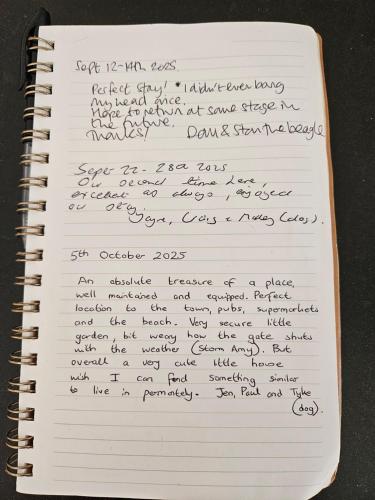 Sept 12-14th 2025.
Perfect stay! *I didn't ever bang
my head once.
Hope to return at some stage in
the future.
Thanks! Dom & Stan the beagle
Sept 22 - 28th 2025
Our second time here,
excellent as always, enjoyed
our stay.
Jayne, Craig & Motley (dog).
5th October 2025
An absolute treasure of a place,
well maintained and equipped. Perfect
location to the town, pubs, supermarkets
and the beach. Very secure little
garden, bit weary how the gate shuts
with the weather (Storm Amy). But
overall a very cute little house
wish I can find something similar
to live in permantely. Jen, Paul and Tyke
(dog).